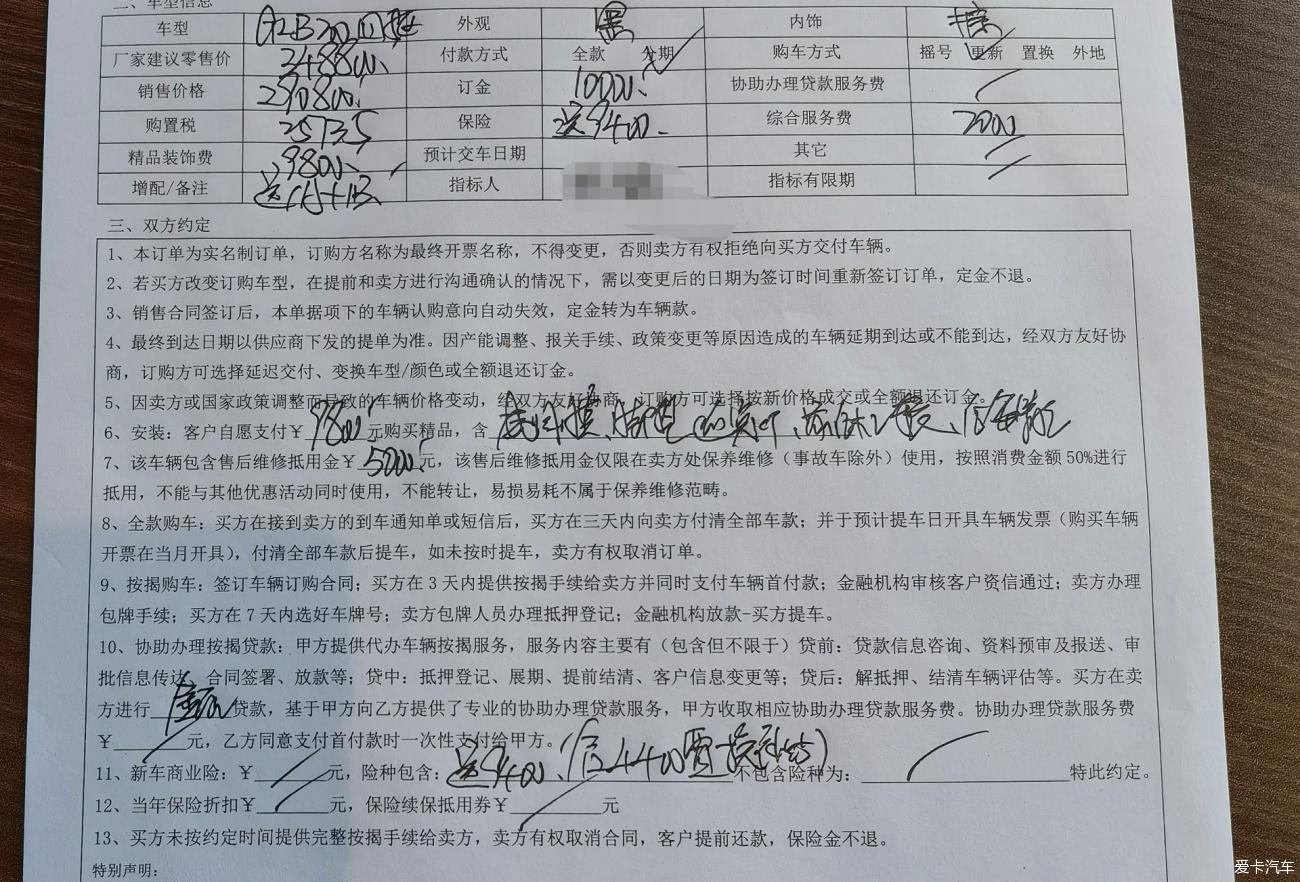 二、车型信息
车型 GLB200 外观 黑 内饰 棕
厂家建议零售价 348800 付款方式 全款 分期 购车方式 摇号 更新 置换 外地
销售价格 290800 订金 10000 协助办理贷款服务费
购置税 25735 保险 送9400 综合服务费 7000
精品装饰费 9800 预计交车日期 其它
增配/备注 指标人 指标有限期
三、双方约定
1、本订单为实名制订单，订购方名称为最终开票名称，不得变更，否则卖方有权拒绝向买方交付车辆。
2、若买方改变订购车型，在提前和卖方进行沟通确认的情况下，需以变更后的日期为签订时间重新签订订单，定金不退。
3、销售合同签订后，本单据项下的车辆认购意向自动失效，定金转为车辆款。
4、最终到达日期以供应商下发的提单为准。因产能调整、报关手续、政策变更等原因造成的车辆延期到达或不能到达，经双方友好协
商，订购方可选择延迟交付、变换车型/颜色或全额退还订金。
5、因卖方或国家政策调整而导致的车辆价格变动，经双方友好协商，订购方可选择按新价格成交或全额退还订金。
6、安装：客户自愿支付￥9800元购买精品，含
7、该车辆包含售后维修抵用金￥5000元，该售后维修抵用金仅限在卖方处保养维修（事故车除外）使用，按照消费金额50%进行
抵用，不能与其他优惠活动同时使用，不能转让，易损易耗不属于保养维修范畴。
8、全款购车：买方在接到卖方的到车通知单或短信后，买方在三天内向卖方付清全部车款；并于预计提车日开具车辆发票（购买车辆
开票在当月开具），付清全部车款后提车，如未按时提车，卖方有权取消订单。
9、按揭购车：签订车辆订购合同；买方在3天内提供按揭手续给卖方并同时支付车辆首付款；金融机构审核客户资信通过；卖方办理
包牌手续；买方在7天内选好车牌号；卖方包牌人员办理抵押登记；金融机构放款-买方提车。
10、协助办理按揭贷款：甲方提供代办车辆按揭服务，服务内容主要有（包含但不限于）贷前：贷款信息咨询、资料预审及报送、审
批信息传达、合同签署、放款等；贷中：抵押登记、展期、提前结清、客户信息变更等；贷后：解抵押、结清车辆评估等。买方在卖
方进行贷款，基于甲方向乙方提供了专业的协助办理贷款服务，甲方收取相应协助办理贷款服务费。协助办理贷款服务费
￥元，乙方同意支付首付款时一次性支付给甲方。
11、新车商业险：￥元，险种包含：送9400 不包含险种为：特此约定。
12、当年保险折扣￥元，保险续保抵用券￥元
13、买方未按约定时间提供完整按揭手续给卖方，卖方有权取消合同，客户提前还款，保险金不退。
特别声明：
爱卡汽车